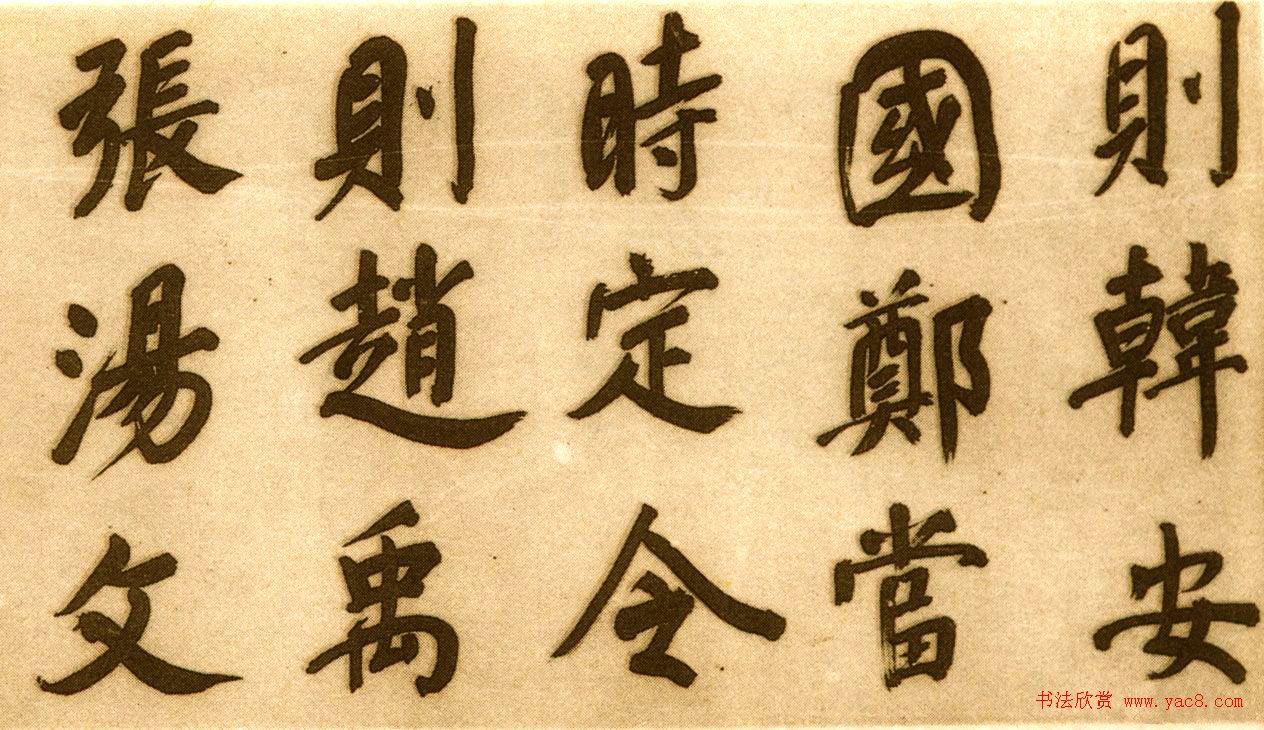 則韓安
國鄭當
時定令
則趙禹
張湯文
书法欣赏 www.yac8.com